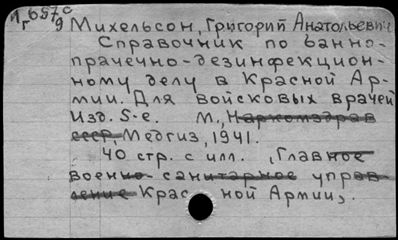 Михельсон, Григорий Анатольевич
Справочник по банно-
прачечно-дезинфекцион-
ному делу в Красной Ар-
мии. Для войсковых врачей
Изд. 5-е. М., Наркомздрав
СССР, Медгиз, 1941.
40 стр. с илл. (Главное
военно-санитарное управ-
ление Крас ной Армии).